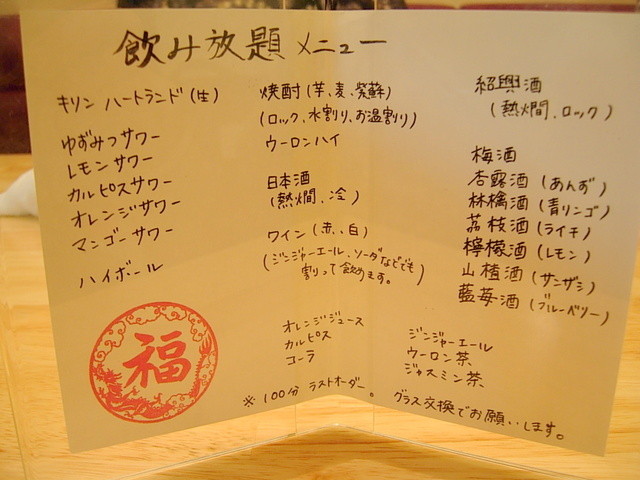 飲み放題 メニュー
キリン ハートランド(生)
ゆずみつサワー
レモンサワー
カルピスサワー
オレンジサワー
マンゴーサワー
ハイボール
焼酎(芋、麦、紫蘇)
(ロック、水割り、お湯割り)
ウーロンハイ
日本酒
(熱燗、冷)
ワイン(赤、白)
(ジンジャーエール、ソーダなどでも
割って飲めます。)
紹興酒
(熱燗、ロック)
梅酒
杏露酒(あんず)
林檎酒(青リンゴ)
茘枝酒(ライチ)
檸檬酒(レモン)
山楂酒(サンザシ)
藍苺酒(ブルーベリー)
オレンジジュース
カルピス
コーラ
ジンジャーエール
ウーロン茶
ジャスミン茶
福
※100分 ラストオーダー。 グラス交換でお願いします。